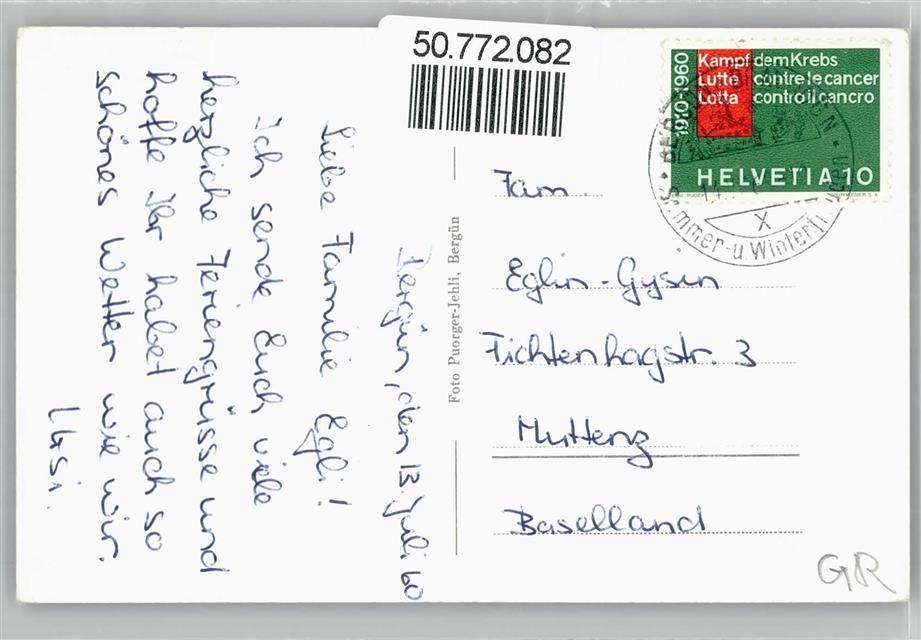 50.772.082
1910-1960
Kampf dem Krebs
Lutte contre le cancer
Lotta contro il cancro
HELVETIA 10
Bergün, den 13. Juli 60
Liebe Familie Egli!
Ich sende Euch viele
herzliche Feriengrüsse und
hoffe Ihr habet auch so
schönes Wetter wie wir.
Ursi.
Foto Puorger-Jehli, Bergün
Fam.
Eglin-Gysin
Fichtenhagstr. 3
Muttenz
Baselland
GR